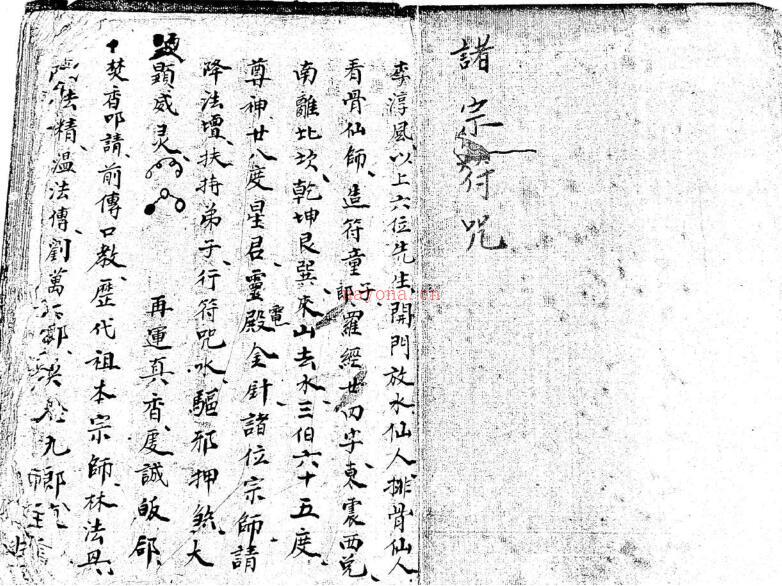 諸宗符咒
李淳風以上六位先生開門放水仙人排骨仙人
看骨仙師造符童子羅經廿四字東震西兌
南離北坎乾坤艮巽來山去水三伯六十五度
尊神廿八度星君靈殿金針諸位宗師請
降法壇扶持弟子行符咒水驅邪押煞大
顯威灵
再運真香虔誠皈
焚香叩請前傳口教歷代祖本宗師林法
法精温法傳劉萬
九郎
nayona.cn